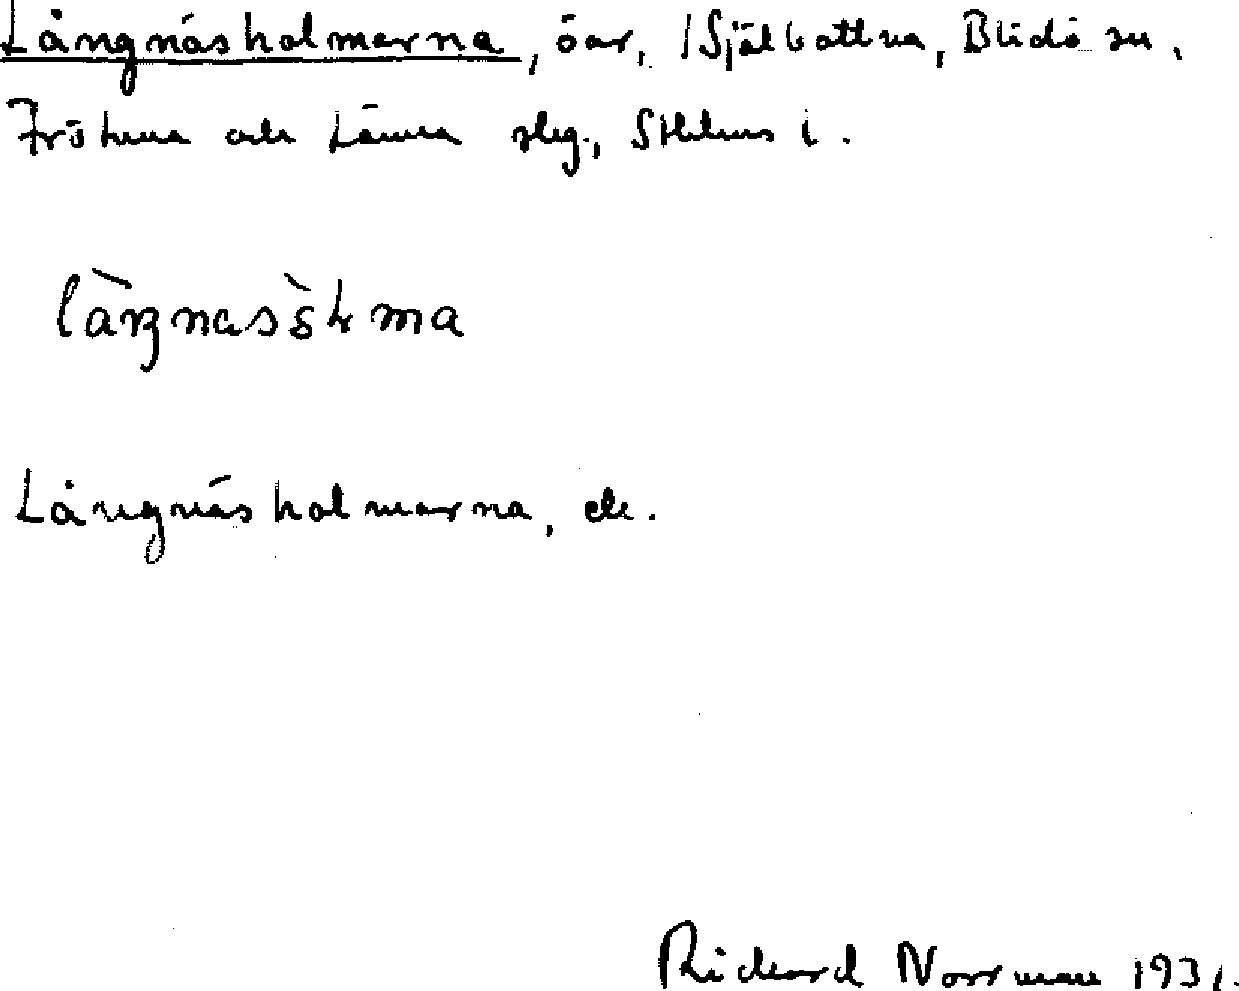 Långnäsholmarna, öar, /Själbottna, Blidö sn,
Frötuna och Länna slg., Sthlms l.
Långnäsholmarna, ek.
Rickard Norrman 1931.